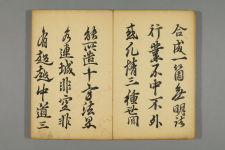 合成一箇無明法
行業不中不外
或凡情三種世間
能造十方法界
亦連城非空非
有超越中道三